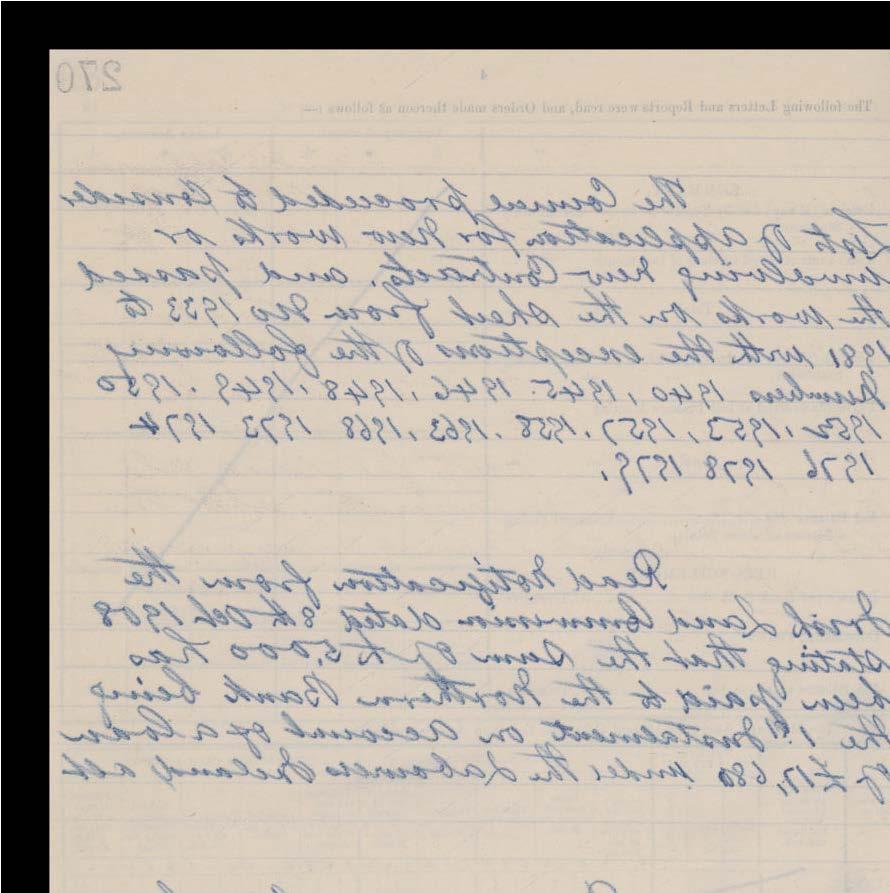 270
4
The following Letters and Reports were read, and Orders made thereon as follows :—
The Council proceeded to Consider
List of application for New works or
involving new Contracts, and passed
the works on the sheet from No 1933 to
1981 with the exceptions of the following
Numbers 1940, 1945. 1946, 1948, 1949. 1950
1952, 1953, 1957, 1958. 1963, 1968 1973 1974
1976 1978 1979.
Read Notification from the
Irish Land Commission dated 8th Oct 1908
stating that the sum of £5,000 has
been paid to the Northern Bank being
the 1st Instalment on account of a loan
of £17,680 under the Labourers Ireland act